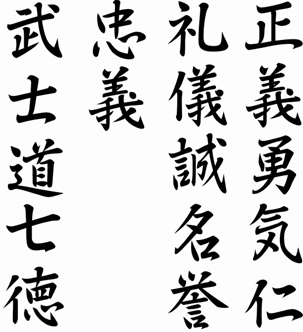 正義勇気仁
礼儀誠名誉
忠義
武士道七徳